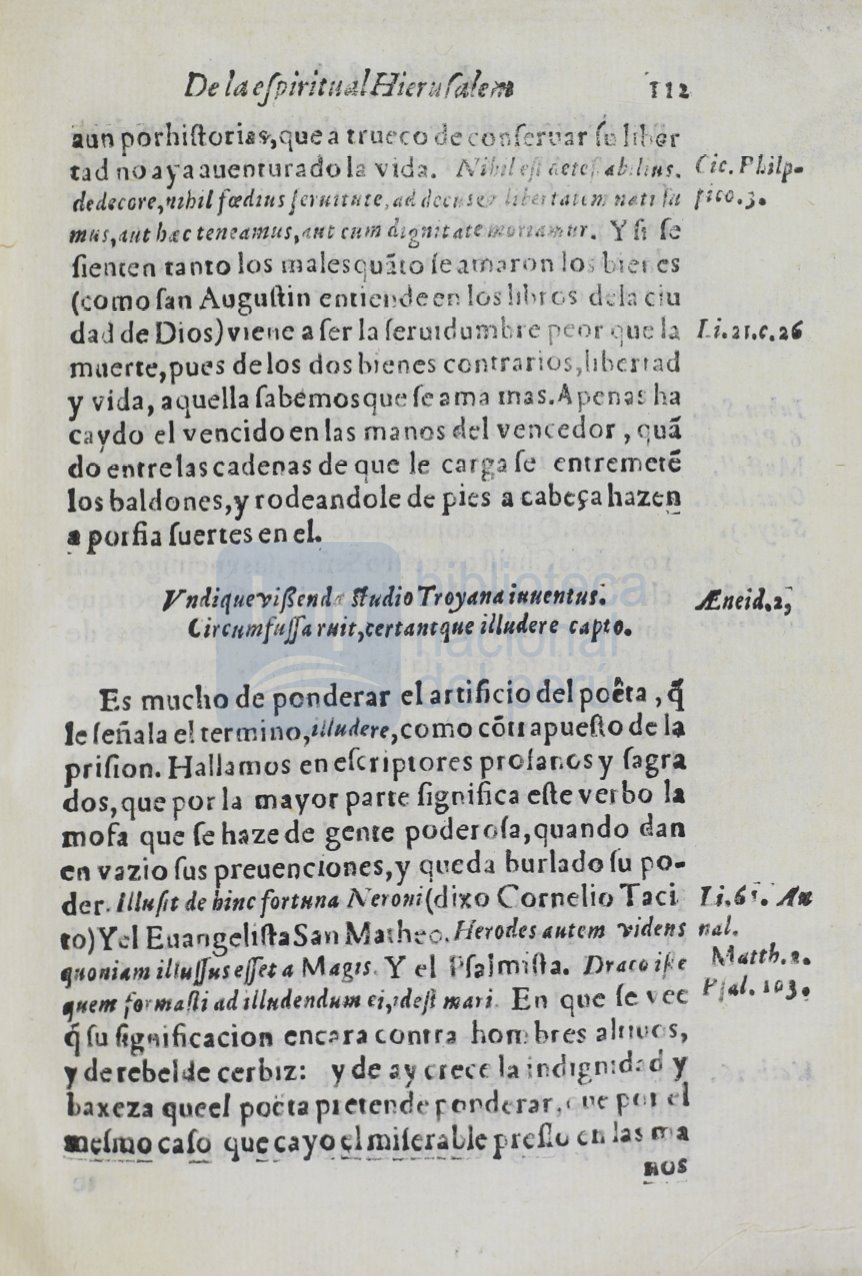 De la eſpiritual Hieruſalem 112
aun por hiſtorias, que a trueco de conſeruar ſu liber
tad no aya auenturado la vida. Nihil eſt deteſtabilius, Cic. Philp-
dedecore, nihil fœdius ſeruitute, ad decus & libertatem nati ſu pico.3.
mus, aut hæc teneamus, aut cum dignitate moriamur. Y ſi ſe
ſienten tanto los males quãto ſe amaron los bienes
(como ſan Auguſtin entiende en los libros dela ciu
dad de Dios) viene a ſer la ſeruidumbre peor que la Li.21.c.26
muerte, pues de los dos bienes contrarios, libertad
y vida, aquella ſabemos que ſe ama mas. Apenas ha
caydo el vencido en las manos del vencedor, quã
do entre las cadenas de que le carga ſe entremetẽ
los baldones, y rodeandole de pies a cabeça hazen
a porfia ſuertes en el.
Vndique viſſendæ ſtudio Troyana iuuentus. Æneid.2,
Circumfuſſa ruit, certantque illudere capto.
biblioteca
nacional
del perú
Es mucho de ponderar el artificio del poêta, q̃
le ſeñala el termino, illudere, como cõtrapueſto de la
priſion. Hallamos en eſcriptores profanos y ſagra
dos, que por la mayor parte ſignifica eſte verbo la
mofa que ſe haze de gente poderoſa, quando dan
en vazio ſus preuenciones, y queda burlado ſu po-
der. Illuſit de hinc fortuna Neroni (dixo Cornelio Taci Li.6. An
to) Y el Euangeliſta San Matheo. Herodes autem videns nal.
quoniam illuſſus eſſet a Magis. Y el Pſalmiſta. Draco iſte Matth.2.
quem formaſti ad illudendum ei, ideſt mari. En que ſe vee Pſal. 103.
q̃ ſu ſignificacion encara contra hombres altiuos,
y de rebelde cerbiz: y de ay crece la indignidad y
baxeza que el poëta pretende ponderar, que por el
meſmo caſo que cayo el miſerable preſſo en las ma
nos